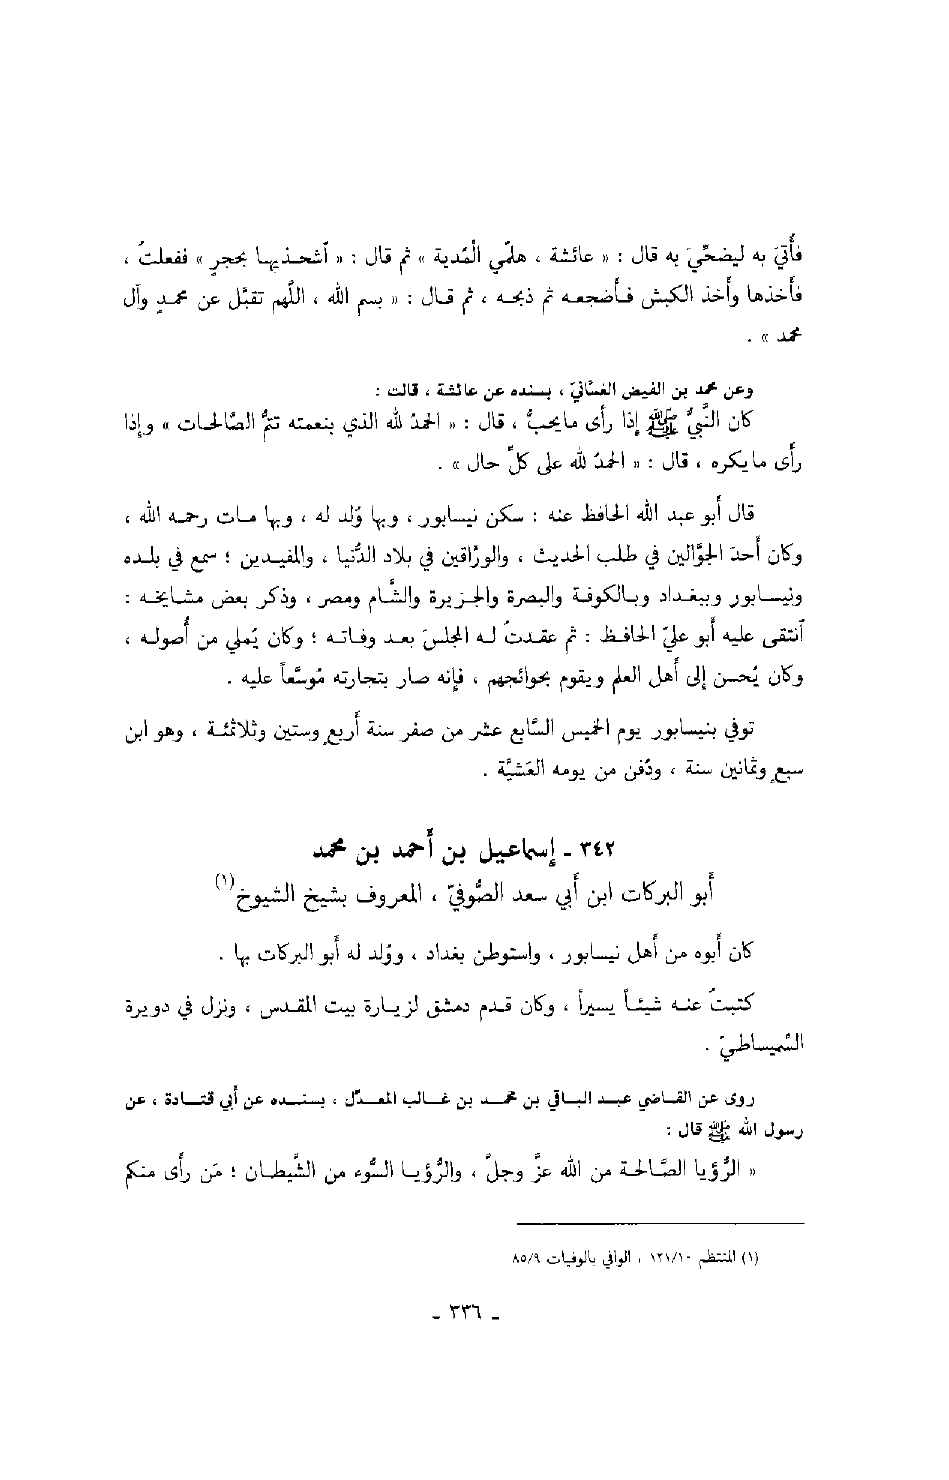 فأُتيَ به ليضحِّيَ به قال : « عائشة ، هلُمِّي المُدية » ثم قال : « آشحذيها بحجرٍ » ففعلتُ ،
فأخذها وأخذ الكبش فأضجعه ثم ذبحه ، ثم قال : « بسم الله ، اللَّهم تقبَّل عن محمدٍ وآل
محمد » .
وعن محمد بن الفيض الغسَّانيّ ، بسنده عن عائشة ، قالت :
كان النَّبيُّ ﷺ إذا رأى مايحبُّ ، قال : « الحمدُ لله الذي بنعمته تتمُّ الصَّالحات » وإذا
رأى مايكره ، قال : « الحمدُ لله على كلِّ حال » .
قال أبو عبد الله الحافظ عنه : سكن نيسابور ، وبها وُلد له ، وبها مات رحمه الله ،
وكان أحدَ الجوَّالين في طلب الحديث ، والورَّاقين في بلاد الدُّنيا ، والمفيدين ؛ سمع في بلده
ونيسابور وببغداد وبالكوفة والبصرة والجزيرة والشَّام ومصر ، وذكر بعض مشايخه :
آنتقى عليه أبو عليّ الحافظ : ثم عقدتُ له المجلسَ بعد وفاته ؛ وكان يُملي من أُصوله ،
وكان يُحسن إلى أهل العلم ويقوم بحوائجهم ، فإنه صار بتجارته مُوسَّعاً عليه .
توفي بنيسابور يوم الخميس السَّابع عشر من صفر سنة أربعٍ وستين وثلاثمئة ، وهو ابن
سبعٍ وثمانين سنة ، ودُفن من يومه العَشيَّة .
٣٤٢ ـ إسماعيل بن أحمد بن محمد
أبو البركات ابن أبي سعد الصُّوفيّ ، المعروف بشيخ الشيوخ(١)
كان أبوه من أهل نيسابور ، واستوطن بغداد ، ووُلد له أبو البركات بها .
كتبتُ عنه شيئاً يسيراً ، وكان قدم دمشق لزيارة بيت المقدس ، ونزل في دويرة
السُّميساطيّ .
روى عن القاضي عبد الباقي بن محمد بن غالب المعدّل ، بسنده عن أبي قتادة ، عن
رسول الله ﷺ قال :
« الرُّؤيا الصَّالحة من الله عزَّ وجلَّ ، والرُّؤيا السُّوء من الشَّيطان ؛ مَن رأى منكم
(١) المنتظم ١٢١/١٠ ، الوافي بالوفيات ٨٥/٩
ـ ٣٣٦ ـ